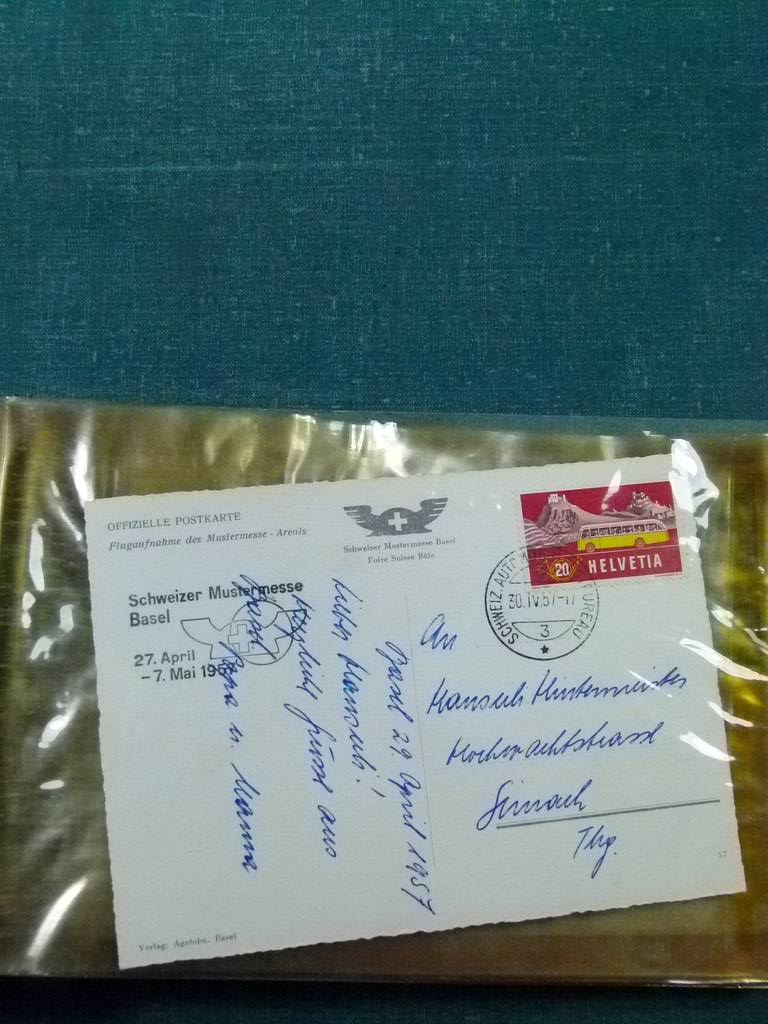 OFFIZIELLE POSTKARTE
Flugaufnahme des Mustermesse-Areals
Schweizer Mustermesse Basel
Foire Suisse Bâle
20 HELVETIA
SCHWEIZ. AUTO
BUREAU
30.IV.57-17
3
Schweizer Mustermesse
Basel
27. April
– 7. Mai 1957
Basel 29. April 1957
Lieber Hansueli!
Herzliche Grüsse aus
Basel
Papa u. Mama
An
Hansueli Hintermeister
Hochwachtstrasse
Sirnach
Thg.
57
Verlag: Agelobe, Basel